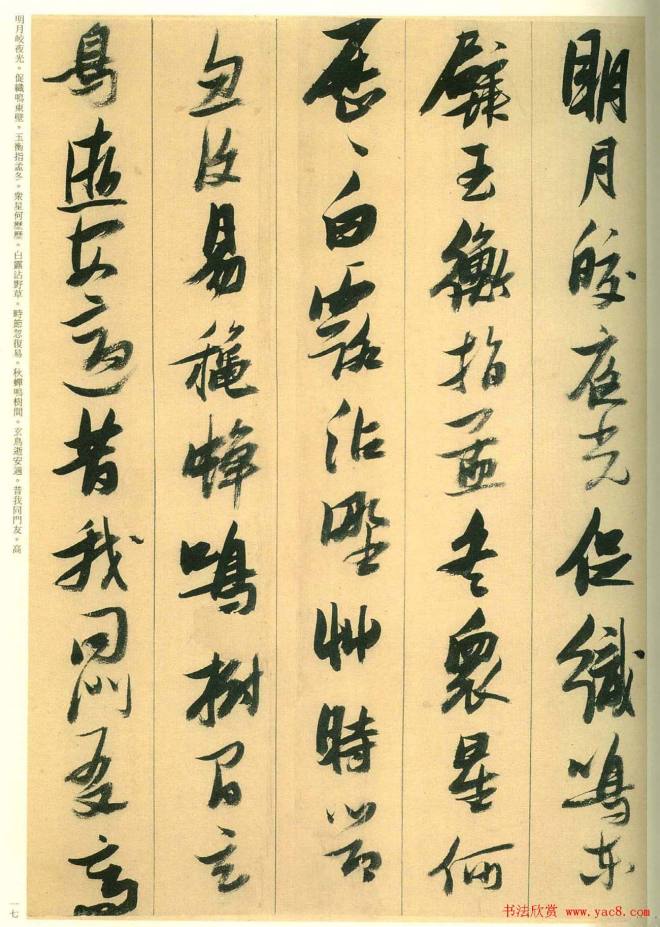 明月皎夜光促織鳴東
壁玉衡指孟冬衆星何
歷〻白露沾野艸時節
忽復易龝蟬鳴樹間玄
鳥逝安適昔我同門友高
明月皎夜光。促織鳴東壁。玉衡指孟冬。衆星何歷歷。白露沾野草。時節忽復易。秋蟬鳴樹間。玄鳥逝安適。昔我同門友。高
一七
书法欣赏 www.yac8.com